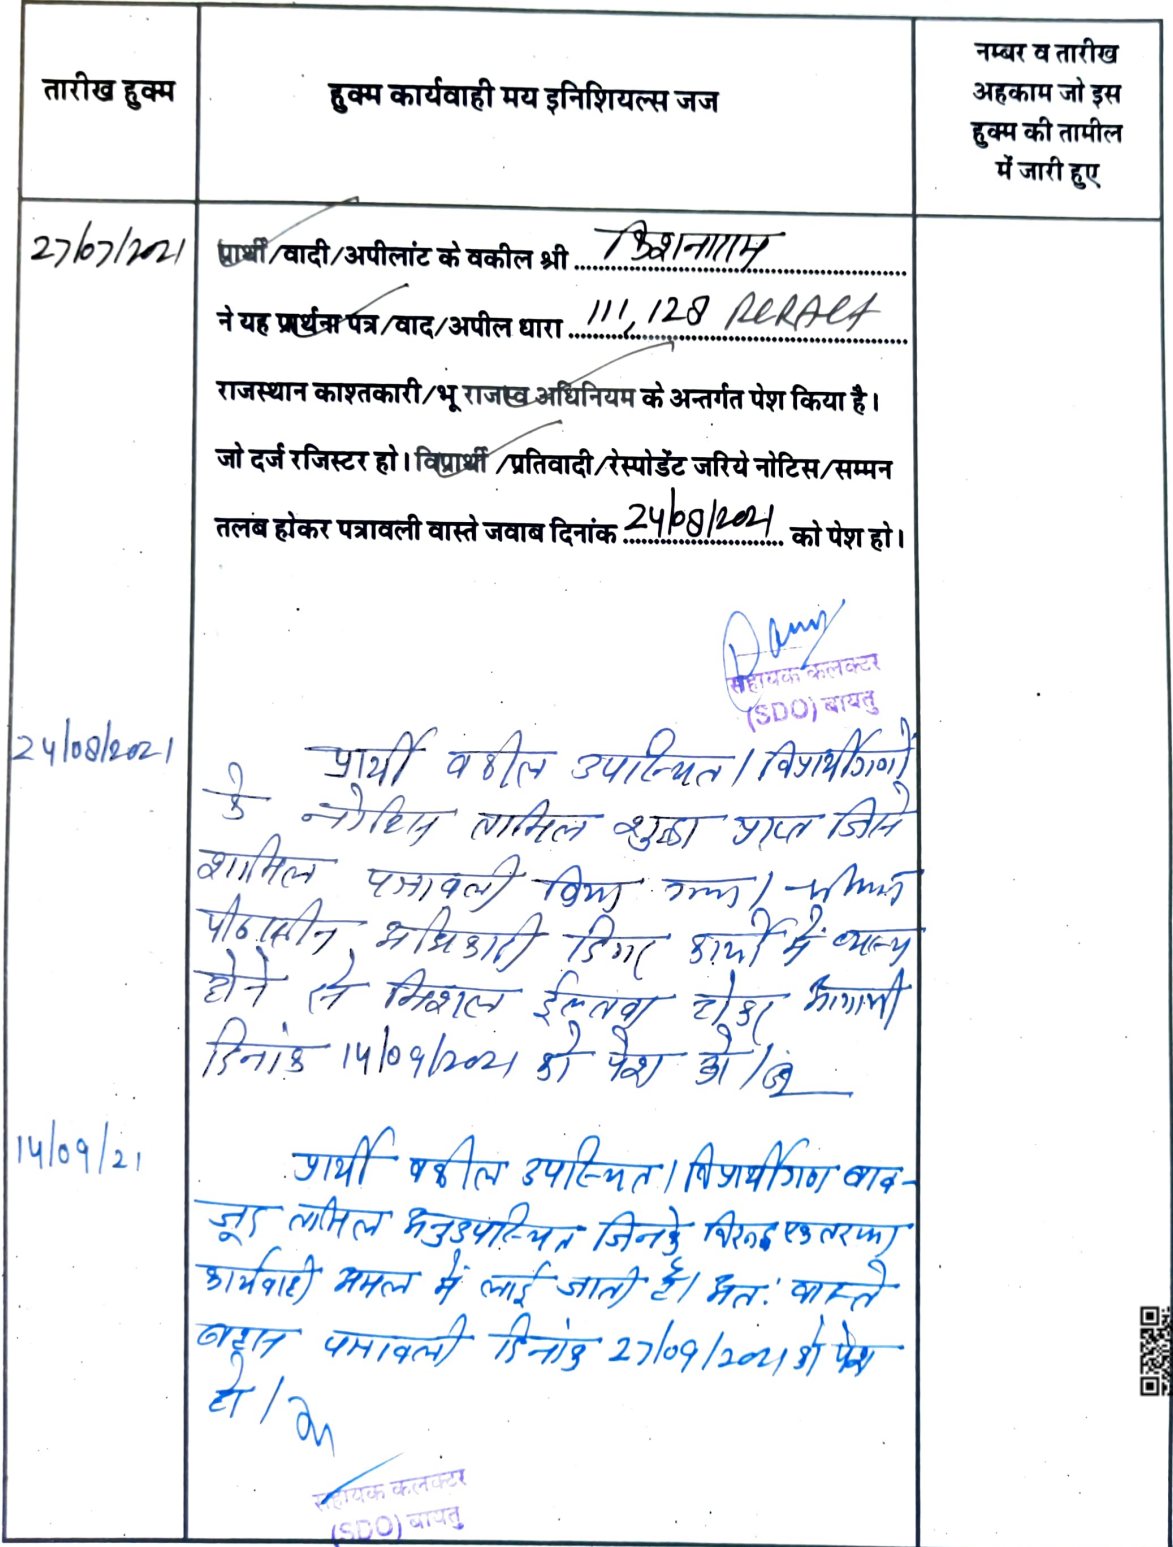 तारीख हुक्म
हुक्म कार्यवाही मय इनिशियल्स जज
नम्बर व तारीख
अहकाम जो इस
हुक्म की तामील
में जारी हुए
27/07/2021
प्रार्थी/वादी/अपीलांट के वकील श्री किशनाराम
ने यह प्रार्थना पत्र/वाद/अपील धारा 111, 128 RLRAct
राजस्थान काश्तकारी/भू राजस्व अधिनियम के अन्तर्गत पेश किया है।
जो दर्ज रजिस्टर हो। विप्रार्थी/प्रतिवादी/रेस्पोडेंट जरिये नोटिस/सम्मन
तलब होकर पत्रावली वास्ते जवाब दिनांक 24/08/2021 को पेश हो।
सहायक कलक्टर
(SDO) बायतु
24/08/2021
प्रार्थी वकील उपस्थित। विप्रार्थीगणों
के नोटिस तामिल शुदा प्राप्त जिसे
शामिल पत्रावली किया गया।
पीठासीन अधिकारी दिगर कार्यो में व्यस्त
होने से मिशल ईल्तवा होकर आगामी
दिनांक 14/09/2021 को पेश हो।
14/09/21
प्रार्थी वकील उपस्थित। विप्रार्थीगण बाव-
जूद तामिल अनुउपस्थित जिनके विरूद्ध एकतरफा
कार्यवाही अमल में लाई जाती है। अत: वास्ते
बहस पत्रावली दिनांक 27/09/2021 को पेश
हो।
सहायक कलक्टर
(SDO) बायतु